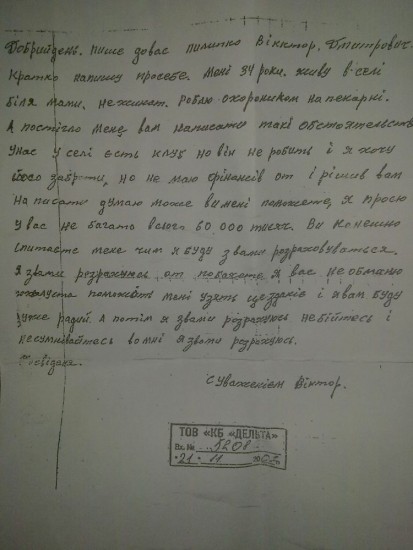 Добрийдень. пише довас пилипко Вікктор. Дмитрович
Кратко напишу просебе. Мені 34 роки. живу в селі
біля мами. не жинат. Роблю охороником на пекарні.
А постігло мене вам написати такі обстоятельств
Унас у селі єсть клуб но він не робить і я хочу
його забрати, но не маю фінансів от і рішив вам
На писати думаю може ви мені поможете, я просю
у вас не багато всього 60.000 тисяч. Ви конешно
спитаєте мене чим я буду з вами розраховуваться.
Я звами розрахуюсь от побачете. Я вас не обманю
пожалуста поможіть мені узять це і я вам буду
дуже радий. А потім я звами розрахуюсь небійтесь і
несумнівайтесь вомні язвами розрахуюсь.
Досвіданя.
С Уваженієм Віктор.
ТОВ «КБ «ДЕЛЬТА»
Вх. № 5208
21 11